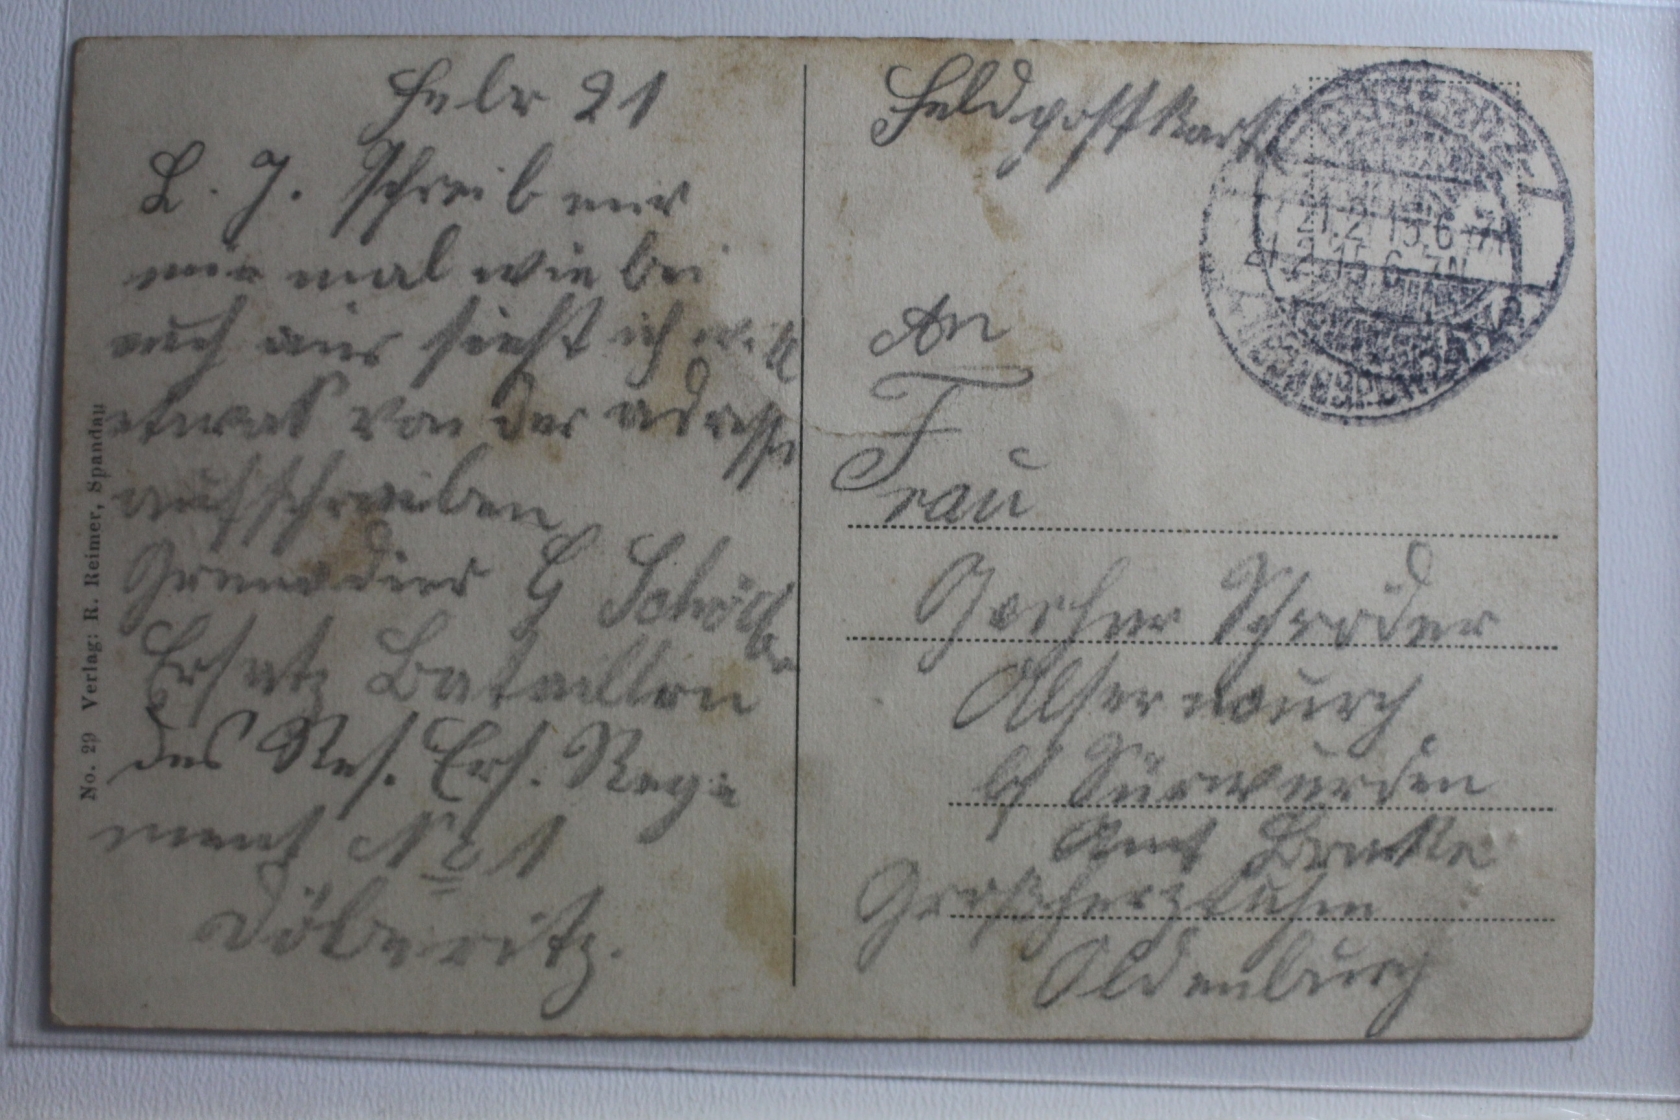 Febr 21
L. J. Schreib mir
mir mal wie bei
euch aus sieht ich will
etwas von der adresse
aufschreiben
Grenadier G
Ersatz Bataillon
des Res. Ers. Regi
ment No 1
Döberitz.
No. 29 Verlag: R. Reimer, Spandau
Feldpostkart
21.2.15.6-7N
An
Frau
Gerher Schröder
bf Sürwürden
Amt Brake
Großherzthum
Oldenburg